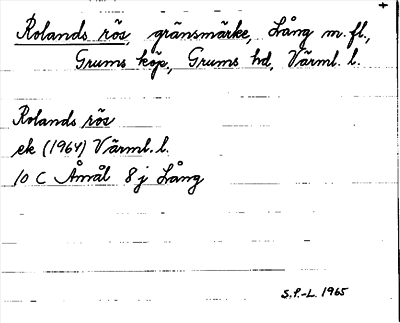 +
Rolands rös, gränsmärke, Lång m.fl.,
Grums köp, Grums hd, Värml. l.
Rolands rös
ek (1964) Värml. l.
10 C Åmål 8 j Lång
S.P.-L. 1965